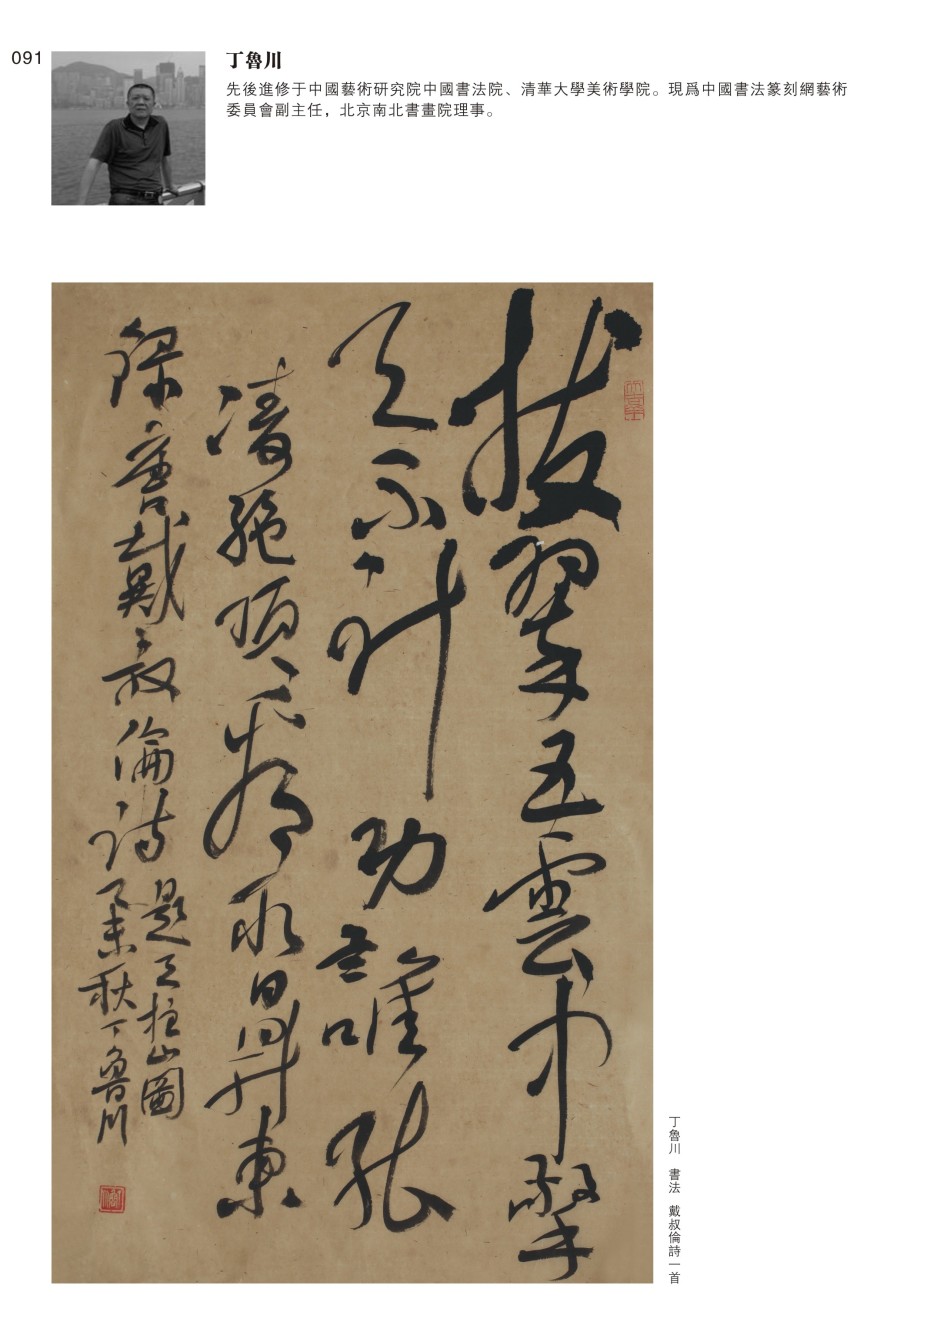 091
丁魯川
先後進修于中國藝術研究院中國書法院、清華大學美術學院。現爲中國書法篆刻網藝術
委員會副主任，北京南北書畫院理事。
拔翠五雲中擎
天不計功誰能
凌絶頂看取日昇東
録唐戴叔倫詩
題天柱山圖
乙未秋丁魯川
丁魯川 書法 戴叔倫詩一首